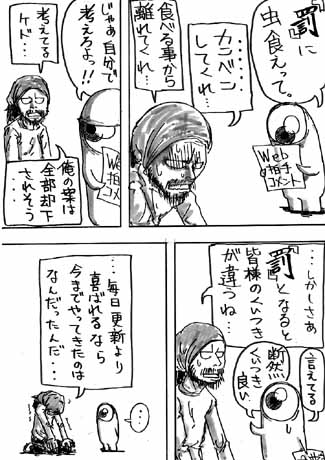 『罰』に
虫食えって。
Web
拍手
コメント
……
カンベン
してくれ…
食べる事から
離れてくれ…
じゃあ自分で
考えろよ!!
Web
拍
コメ
考えてる
ケド…
俺の案は
全部却下
されそう
…
…しかしさぁ
『罰』となると
皆様のくいつき
が違うね…
言えてる
断然
くいつき
良い
…毎日更新より
喜ばれるなら
今までやってきたのは
なんだったんだ…
…